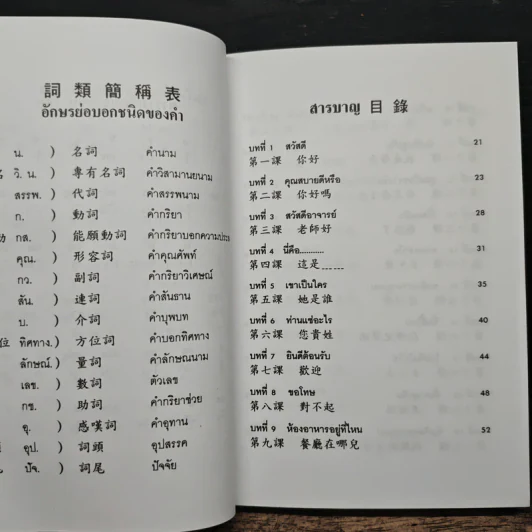 詞類簡稱表
อักษรย่อบอกชนิดของคำ
น. ) 名詞 คำนาม
วิ. น. ) 專有名詞 คำวิสามานยนาม
สรรพ. ) 代詞 คำสรรพนาม
ก. ) 動詞 คำกริยา
กส. ) 能願動詞 คำกริยาบอกความประ
คุณ. ) 形容詞 คำคุณศัพท์
กว. ) 副詞 คำกริยาวิเศษณ์
สัน. ) 連詞 คำสันธาน
บ. ) 介詞 คำบุพบท
位 ทิศทาง. ) 方位詞 คำบอกทิศทาง
ลักษณ์. ) 量詞 คำลักษณนาม
เลข. ) 數詞 ตัวเลข
กช. ) 助詞 คำกริยาช่วย
อุ. ) 感嘆詞 คำอุทาน
อุป. ) 詞頭 อุปสรรค
ปัจ. ) 詞尾 ปัจจัย
สารบาญ 目錄
บทที่ 1 สวัสดี 21
第一課 你好
บทที่ 2 คุณสบายดีหรือ 23
第二課 你好嗎
บทที่ 3 สวัสดีอาจารย์ 28
第三課 老師好
บทที่ 4 นี่คือ........... 31
第四課 這是......
บทที่ 5 เขาเป็นใคร 35
第五課 她是誰
บทที่ 6 ท่านแซ่อะไร 40
第六課 您貴姓
บทที่ 7 ยินดีต้อนรับ 44
第七課 歡迎
บทที่ 8 ขอโทษ 48
第八課 對不起
บทที่ 9 ห้องอาหารอยู่ที่ไหน 52
第九課 餐廳在哪兒